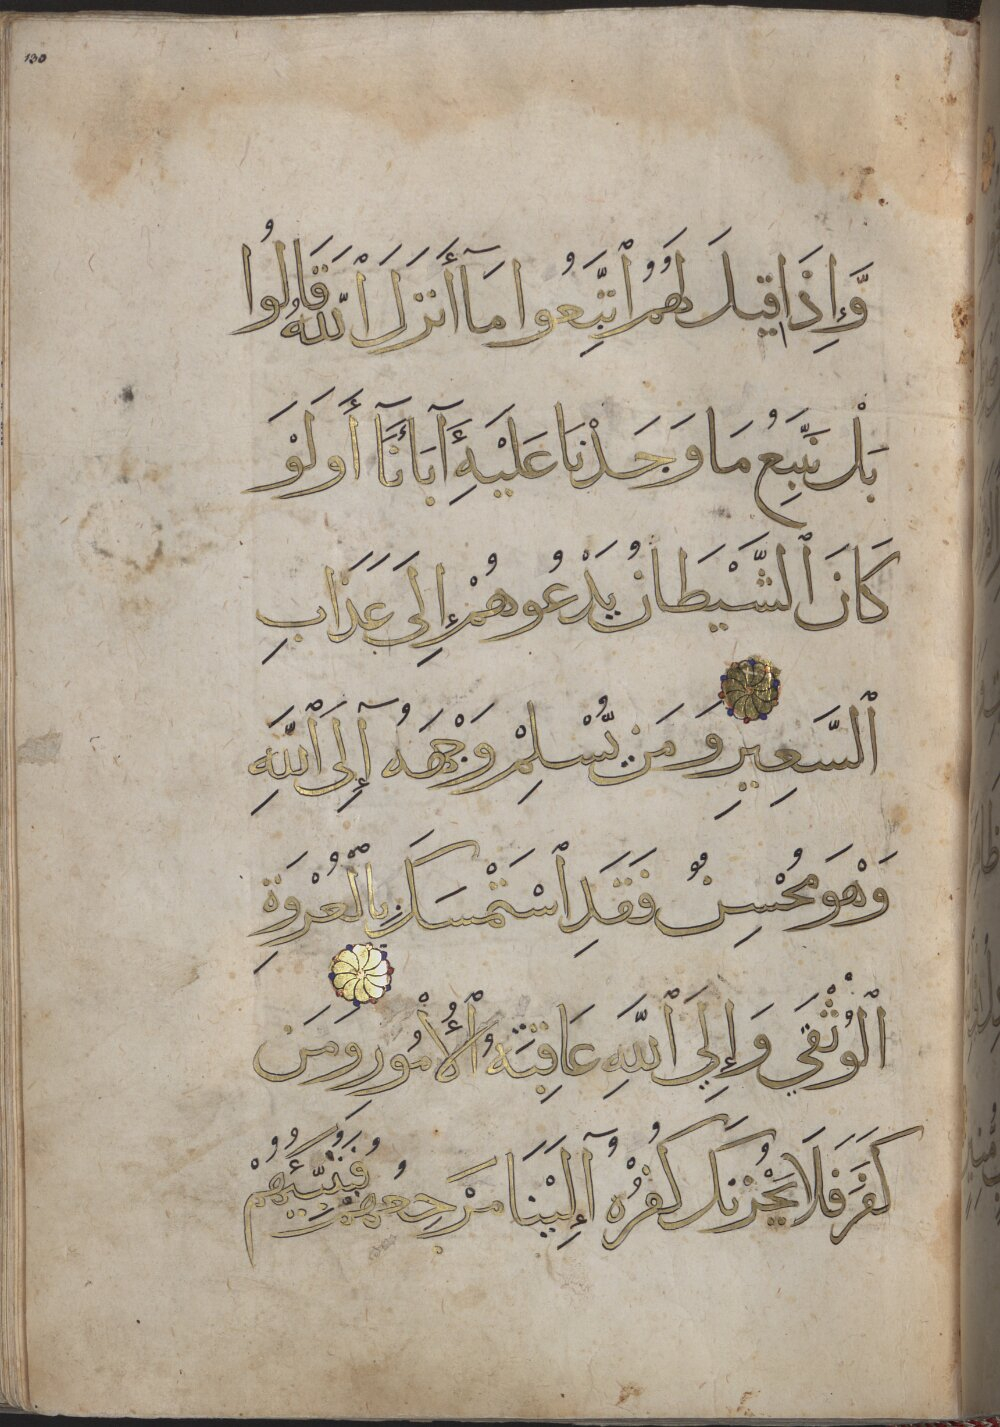 130
وَّإِذَا قِيلَ لَهُمُ ٱتَّبِعُوا مَآ أَنزَلَ ٱللَّهُ قَالُوا
بَلْ نَتَّبِعُ مَا وَجَدْنَا عَلَيْهِ آبَاءَنَآ أَوَلَوْ
كَانَ ٱلشَّيْطَانُ يَدْعُوهُمْ إِلَى عَذَابِ
ٱلسَّعِيرِ وَمَن يُّسْلِمْ وَجْهَهُ إِلَى ٱللَّهِ
وَهْوَ مُحْسِنٌ فَقَدِ ٱسْتَمْسَكَ بِٱلْعُرْوَةِ
ٱلْوُثْقَي وَإِلَي ٱللَّهِ عَاقِبَةُ ٱلْأُمُورِ وَمَن
كَفَرَ فَلَا يَحْزُنكَ كُفْرُهُ إِلَيْنَا مَرْجِعُهُمْ فَنُنَبِّئُهُمْ